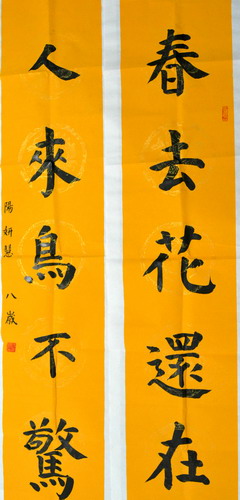 春去花還在
人來鳥不驚
陽妍慧 八歲